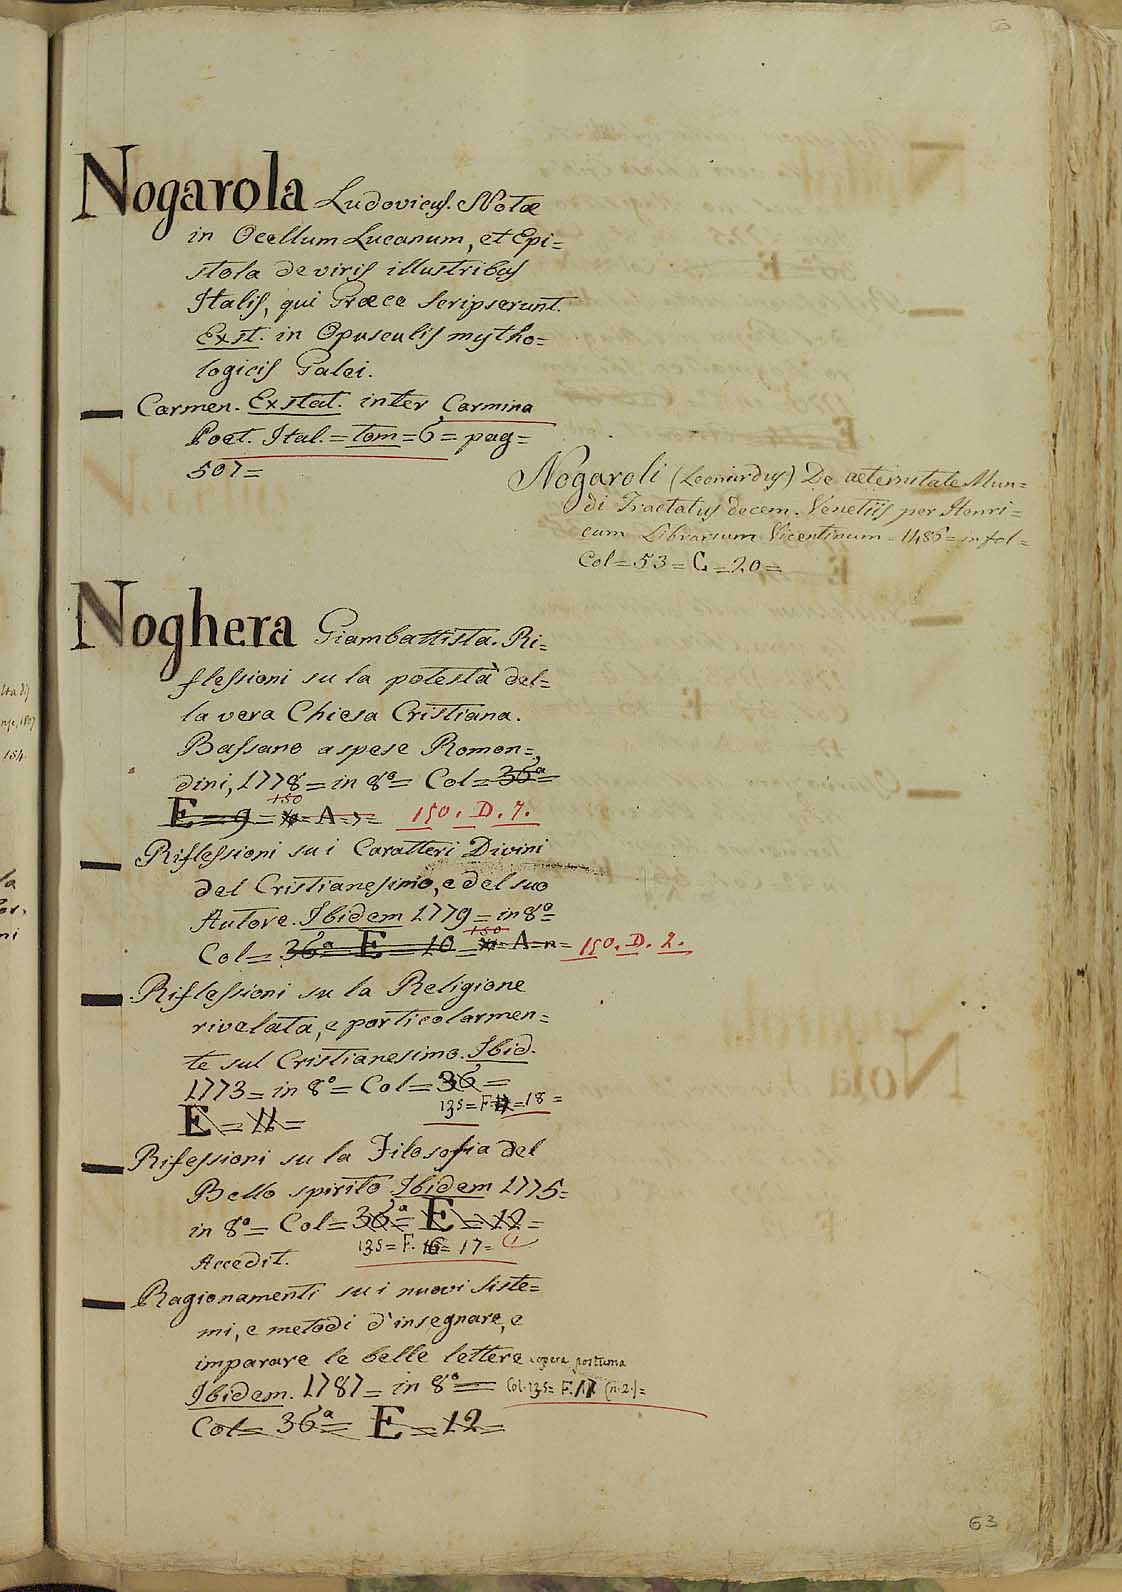 Nogarola Ludovicus. Notæ
in Ocellum Lucanum, et Epi=
stola de viris illustribus
Italis, qui Græce scripserunt.
Exst. in Opusculis mytho=
logicis Galei.
Carmen. Exstat. inter Carmina
Poet. Ital. = tom = 6 = pag =
507 =
Nogaroli (Leonardus) De aeternitate Mun=
di Tractatus decem. Venetiis per Henri=
cum Librarium Vicentinum 1485 = in fol =
Col = 53 = C = 20 =
Noghera Giambattista. Ri=
flessioni su la potestà del=
la vera Chiesa Cristiana.
Bassano a spese Remon=
dini, 1778 = in 8º = Col = 36ª =
150
E = 9 = A = 150. D. 7.
Riflessioni su i Caratteri Divini
del Cristianesimo, e del suo
Autore. Ibidem 1779 = in 8º =
150
Col = 36ª E = 10 = A = 150. D. 2.
Riflessioni su la Religione
rivelata, e particolarmen=
te sul Cristianesimo. Ibid.
1773 = in 8º = Col = 36 =
E = 11 = 135 = F. = 18 =
Rifessioni su la Filosofia del
Bello spirito Ibidem 1775 =
in 8º = Col = 36ª = E = 12 =
135 = F. 16 = 17 =
Accedit.
Ragionamenti su i nuovi siste=
mi, e metodi d'insegnare, e
imparare le belle lettere opera postuma
Ibidem. 1787 = in 8º = Col. 135 = F. 17 (n. 2.) =
Col = 36ª = E = 12 =
63